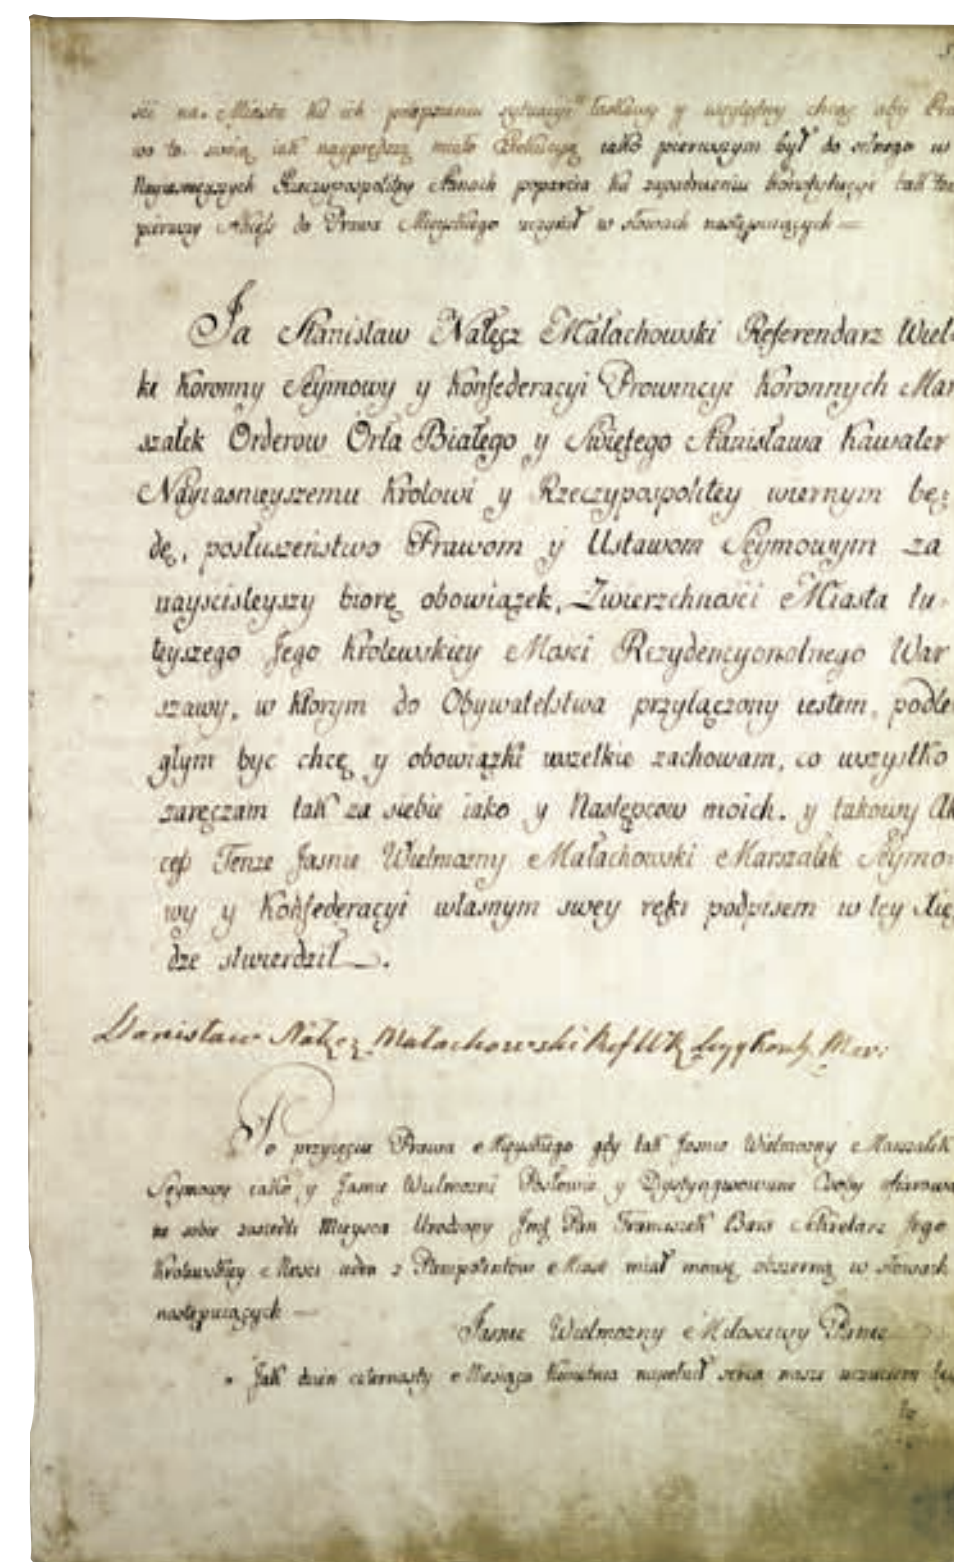 ści na Miasta ku ich polepszeniu sytuacyi łaskawy y względny chcąc aby Pra
wo to swoią iak nayprędszą miało Exekucyą iako pierwszym był do silnego w
Nayiasnieyszych Rzeczypospolitey Stanach poparcia ku zapadnieniu Konstytucyi tak też
pierwszy Akces do Prawa Mieyskiego uczynił w słowach następuiących —
Ja Stanisław Nałęcz Małachowski Referendarz Wiel-
ki Koronny Seymowy y Konfederacyi Prowincyi Koronnych Mar
szałek Orderow Orła Białego y Swiętego Stanisława Kawaler
Nayiasnieyszemu Krolowi y Rzeczypospolitey wiernym bę:
dę, posłuszeństwo Prawom y Ustawom Seymowym za
nayscisleyszy biorę obowiązek, Zwierzchności Miasta tu-
teyszego Jego Krolewskiey Mosci Rezydencyonalnego War
szawy, w ktorym do Obywatelstwa przyłączony iestem, podle
głym byc chcę y obowiązki wszelkie zachowam, co wszystko
zaręczam tak za siebie iako y Następcow moich. y takowy Ak
ces Tenże Jasnie Wielmożny Małachowski Marszałek Seymo-
wy y Konfederacyi własnym swey ręki podpisem w tey Xię
dze stwierdził.
Stanisław Nałęcz Małachowski Ref WK Sey y Konf. Mar:
Po przyięciu Prawa Mieyskiego gdy tak Jasnie Wielmożny Marszałek
Seymowy iako y Jasnie Wielmożni Posłowie y Dystyngwowane Osoby ofiarowa
ne sobie zasiedli Mieysca Urodzony Jmć Pan Franciszek Bars Sekretarz Jego
Krolewskiey Mosci ieden z Plenipotentow Miast miał mowę obszerną w słowach
następuiących —
Jasnie Wielmozny Miłosciwy Panie
Jak dzień czternasty Miesiąca Kwietnia napełnił serca nasze uczuciem